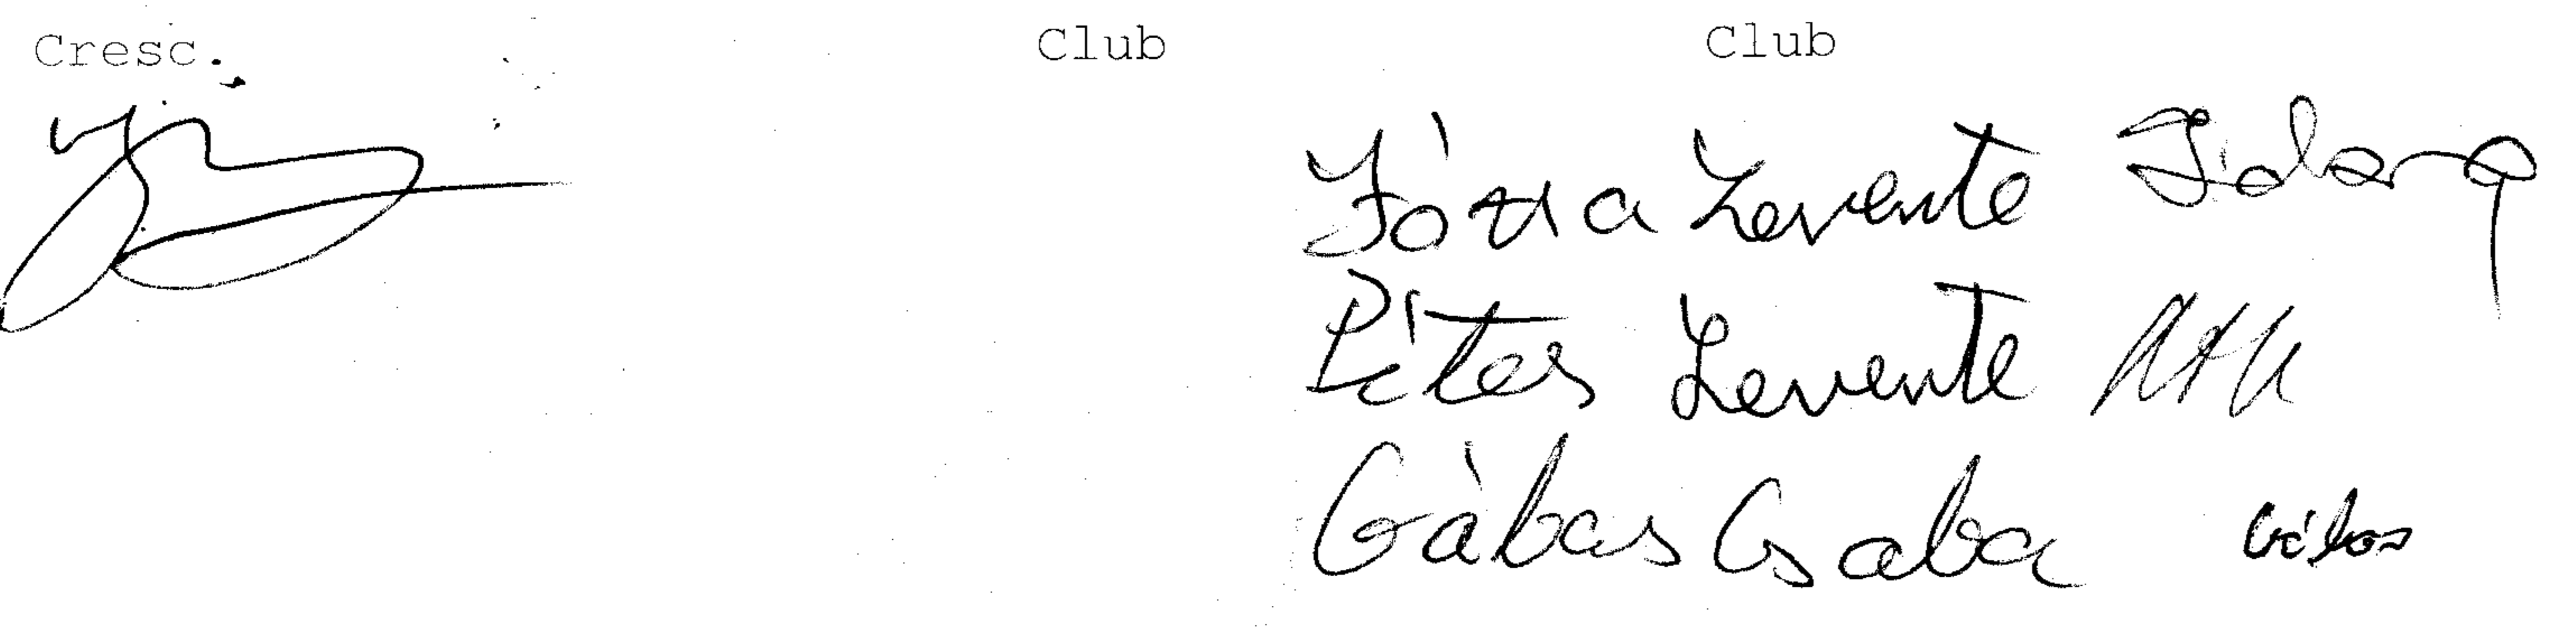 Cresc. Club Club
Józsa Levente
Péter Levente
Gábas Csaba Gábos